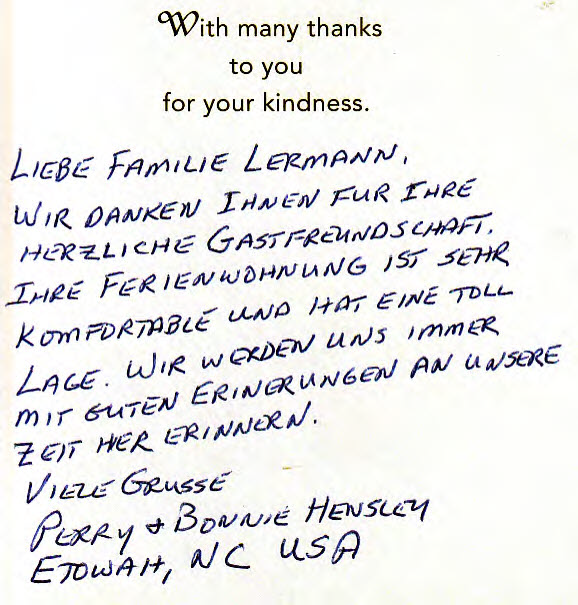 With many thanks
to you
for your kindness.
LIEBE FAMILIE LERMANN,
WIR DANKEN IHNEN FUR IHRE
HERZLICHE GASTFREUNDSCHAFT.
IHRE FERIENWOHNUNG IST SEHR
KOMFORTABLE UND HAT EINE TOLL
LAGE. WIR WERDEN UNS IMMER
MIT GUTEN ERINERUNGEN AN UNSERE
ZEIT HER ERINNERN.
VIELE GRUSSE
PERRY & BONNIE HENSLEY
ETOWAH, NC USA